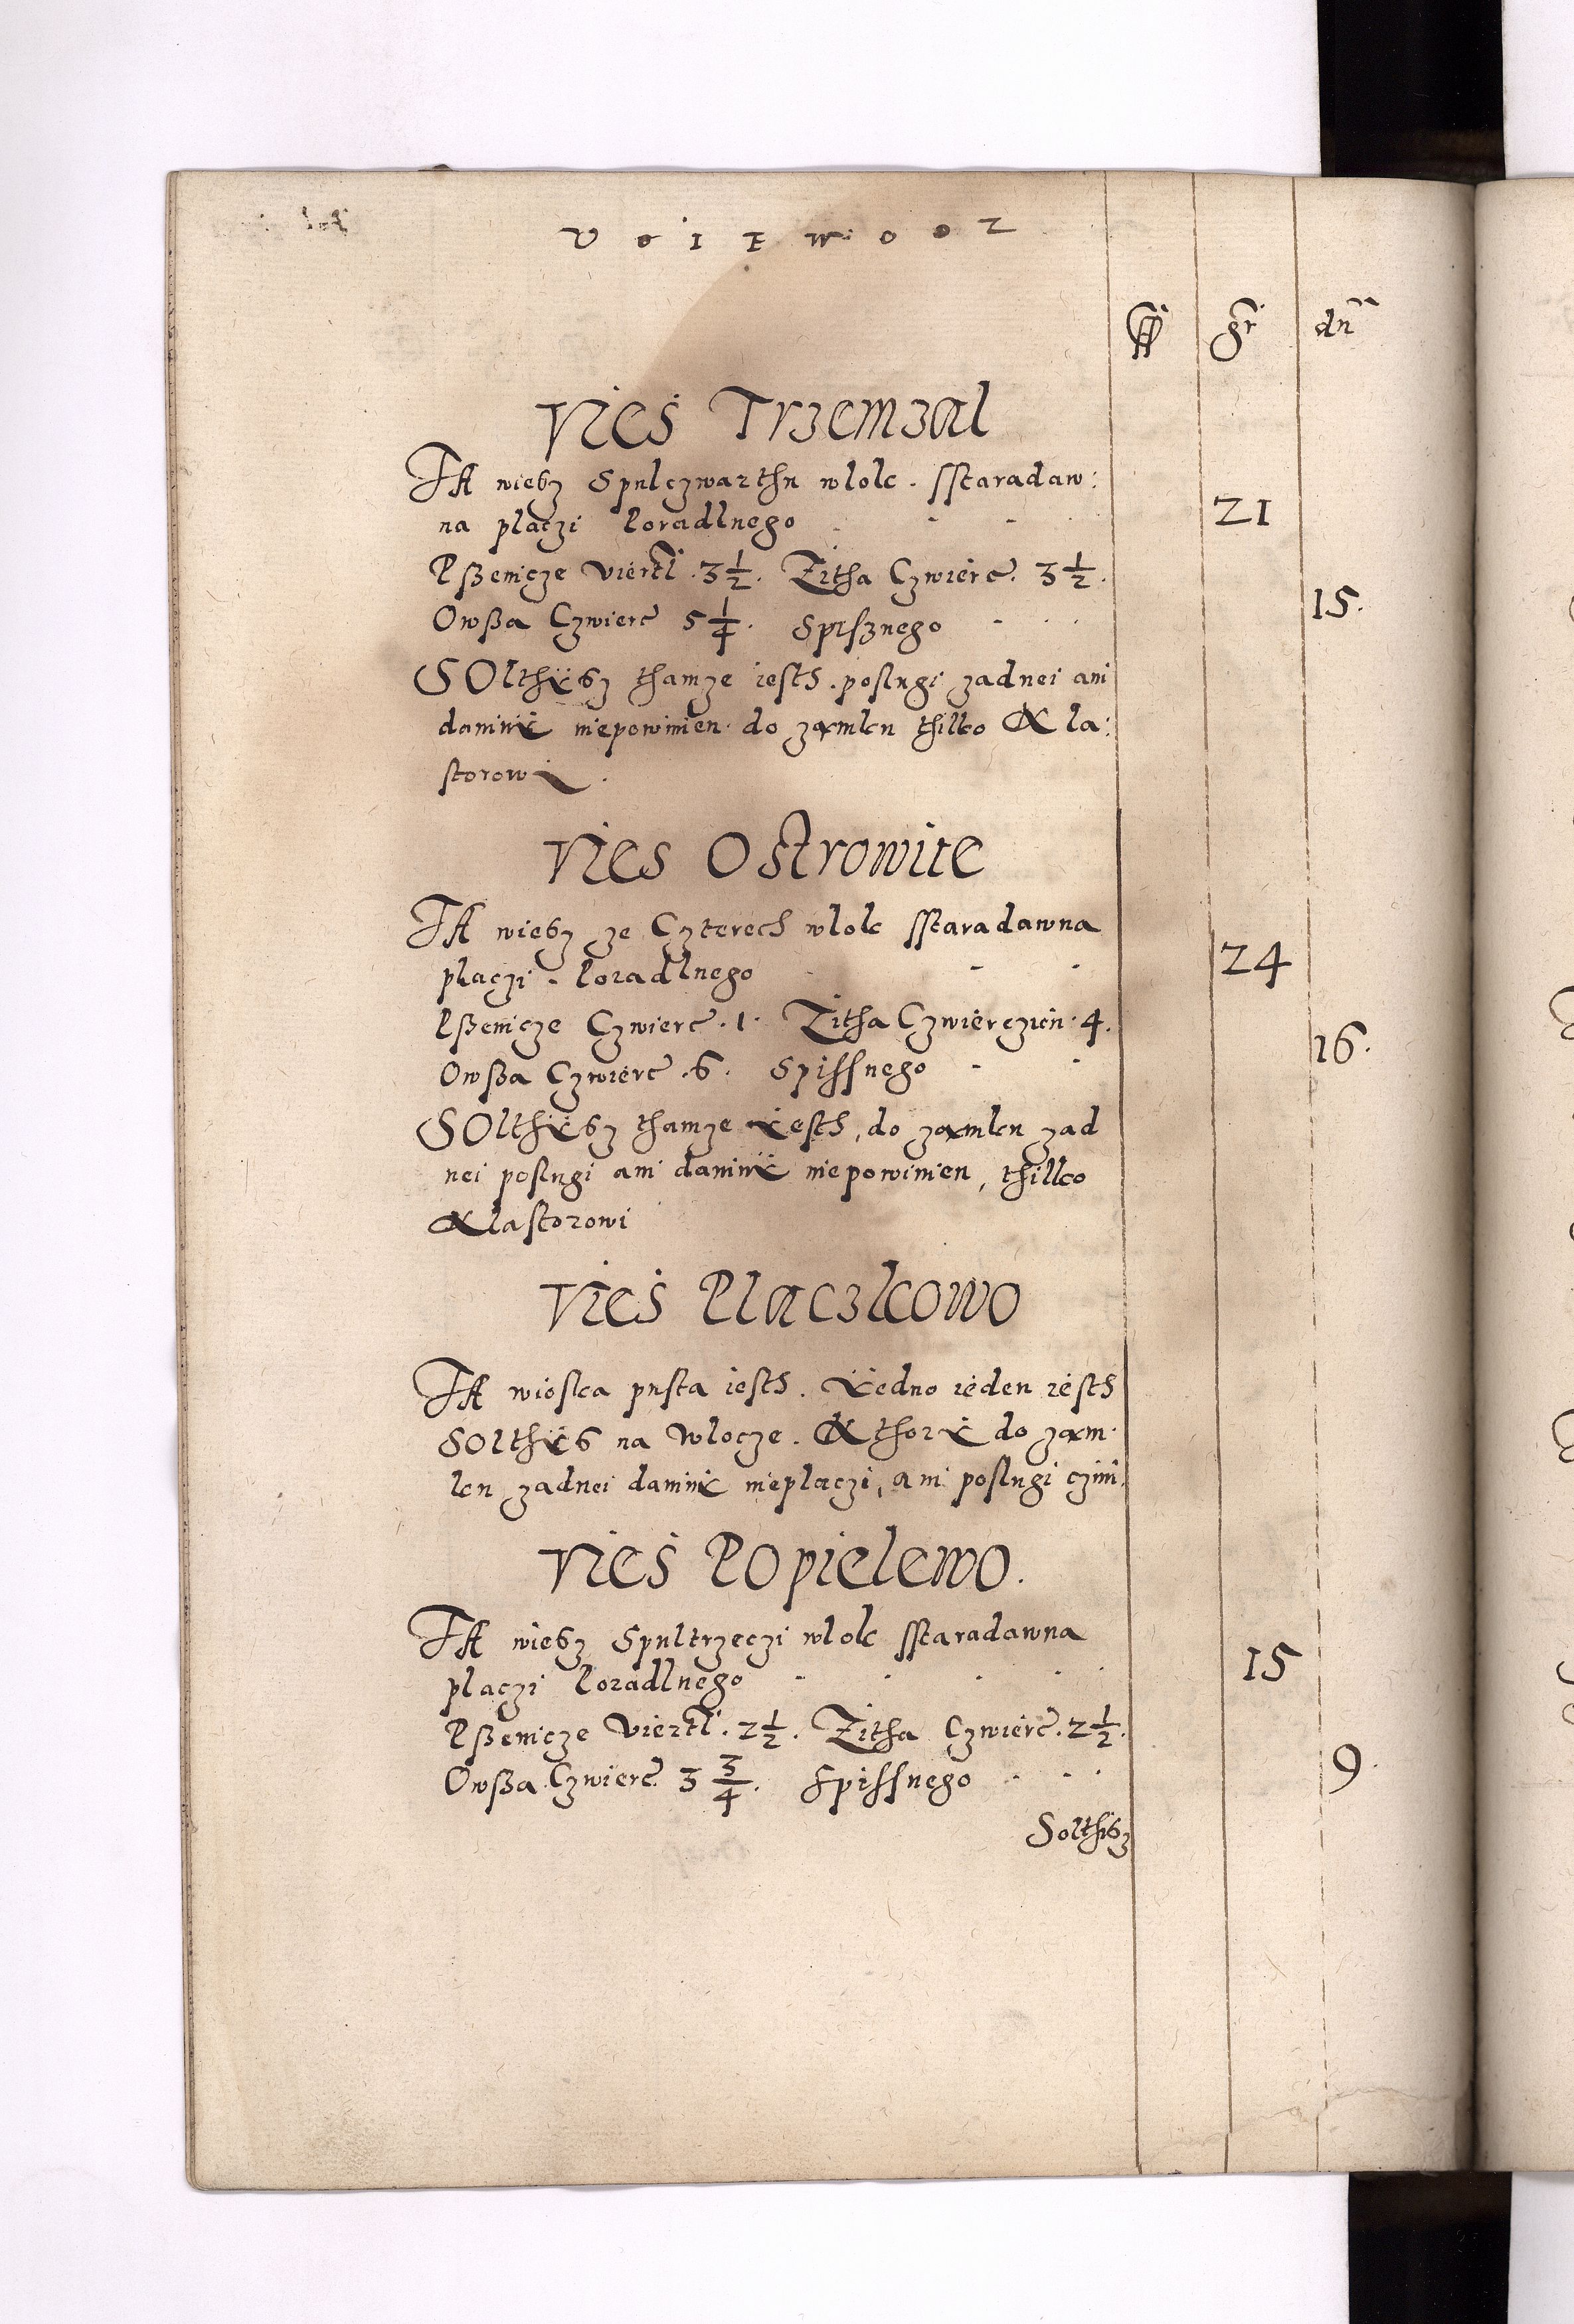 V O I E W O D Z
gr dn
Vieś Trzemzal
TA wiesz Spulczwarthu wlok. sstaradaw:
na płaczi Poradlnego 21
Pßenicze Viertl. 3 1/2. Zitha Czwierc. 3 1/2.
Owßa Czwierc 5 1/4. Spisznego 15.
SOlthÿsz thamze iesth. poslugi zadnei ani
daninÿ niepowinien. do zamku thilko Kla:
storowi.
Vies Ostrowite
TA wiesz ze Czterech wlok sstaradawna
płaczi. Poradlnego 24
Pßenicze Czwierc. 1. Zitha Czwierczien. 4.
Owßa Czwierc. 6. Spissnego 16.
SOlthÿsz thamze ÿesth, do zamku zad
nei poslugi ani daninÿ niepowinien, thilko
Klastorowi
Vieś Placzkowo
TA wioska pusta iesth. ÿedno ieden iesth
SOlthÿs na Wlocze. Kthorÿ do zam.
ku zadnei daninÿ nieplaczi, ani poslugi czini.
Vieś Popielewo.
TA wiesz Spultrzeczi wlok sstaradawna
płaczi Poradlnego 15
Pßenicze Viertl. 2 1/2. Zitha Czwierc. 2 1/2.
Owßa Czwierc 3 3/4. Spissnego 9.
Solthisz